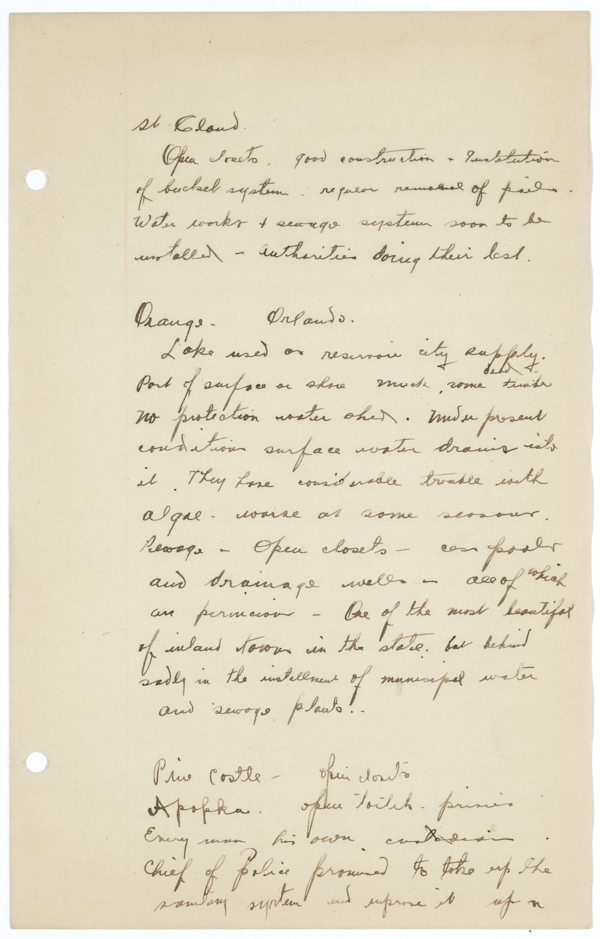 St. Cloud.
Open closets. good construction - Institution
of bucket system. regular removal of pails.
Water works + sewage system soon to be
installed - authorities doing their best.
Orange - Orlando.
Lake used as reservoir city supply.
Part of surface or shore muck, some dead timber
no protection water shed. Under present
conditions surface water drains into
it. They have considerable trouble with
algae - worse at some seasons.
Sewage - Open closets - cess pools
and drainage wells - all of which
are pernicious - One of the most beautiful
of inland towns in the state. but behind
sadly in the installment of municipal water
and sewage plants..
Pine Castle - open closets
Apopka. open toilets - privies
Every man his own custodian.
Chief of Police promised to take up the
sanitary system and improve it